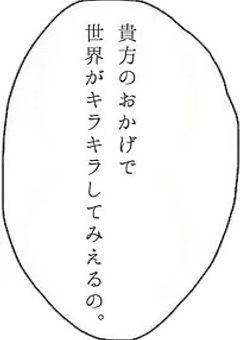 貴方のおかげで
世界がキラキラしてみえるの。